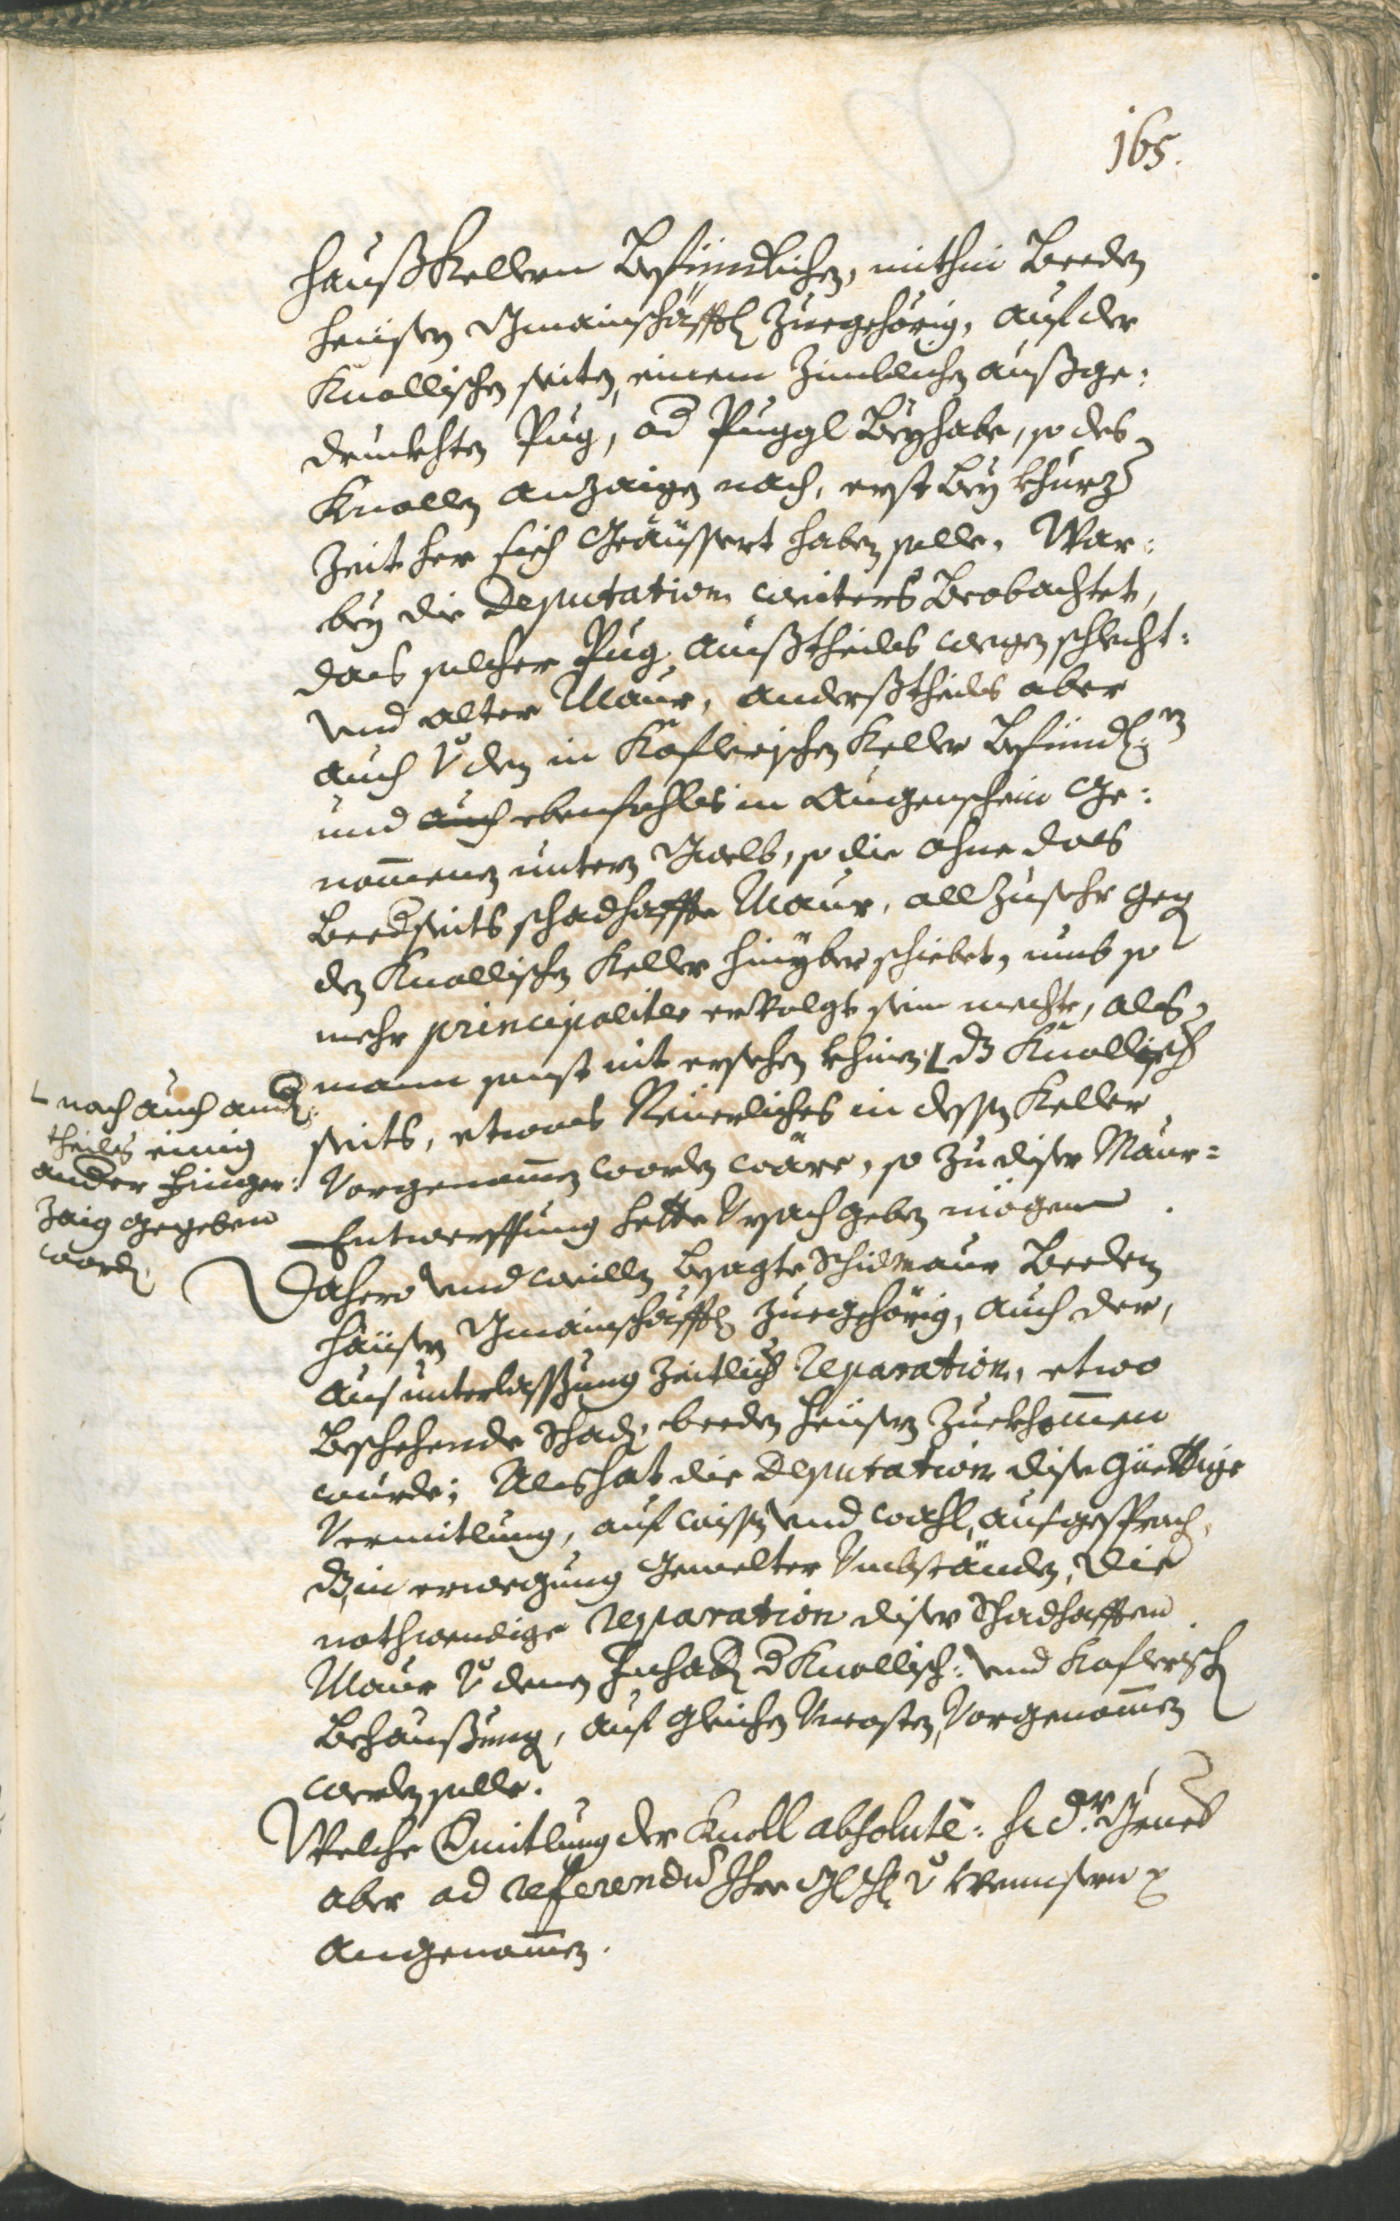 165.
hauß Kellern Befündlichen, mithin Beeden
heüsern Gmainschäfftl zuegehörig, auf der
Knollischen seiten, einem zimblichen außge:
druckhten Pug, od Puggl Beyhabe, so des
Knollen anzaigen nach, erst bey khurzer
Zeit her sich Geäussert haben solle. War:
bey die Deputation weiters Beobachtet,
das solcher Pug, außtheils wegen schlecht:
und alter Maur, anderßtheils aber
auch v den in Koflerischen Keller Befünden
und auch ebenfahls in Augenschein Ge:
nommenen untern Gwelb, so die ohne das
Beedseits schadhaffte Maur, all zusehr gegen
den Knollischen Keller hinyber schiebet, umb so
mehr principaliter ervolgt sein mechte, als
mann sonst nit ersehen khinen, L dz Knollischer
seits, etwas Neuerliches in dessen Keller
Vorgenommen worden wäre, so zu diser Maur=
Entwerffung hette Ursach geben mögen.
L noch auch and
theils einig
ander finger:
zaig gegeben
worden
Dahero und weillen besagte Schidmaur Beeden
häüsern Gmainschäfftl zuegehörig, auch der,
aus unterlassung zeitlicher Reparation, etwo
Beschehende Schaden beeden heüsern zuekhommen
wurde; Als hat die Deputation dise Güettige
Vermitlung, auf wissen und wahl, ausgesprochen,
dz in erwegung Gemelter Umbständen, die
nothwendige reparation diser Schadhafften
Maur v denen Inhabern d Knollisch: und Koflerischen
Behaußung, auf gleichen Uncosten, Vorgenommen
werden solle.
Welche Vermitlung der Knoll absolutè: h: dr.
aber ad referendum Ihre v
angenommen.